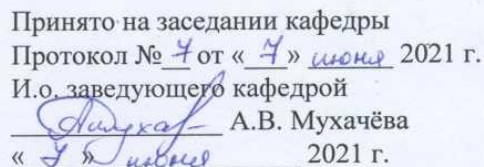 Принято на заседании кафедры
Протокол № 7 от « 7 » июня 2021 г.
И.о. заведующего кафедрой
А.В. Мухачёва
« 7 » июня 2021 г.